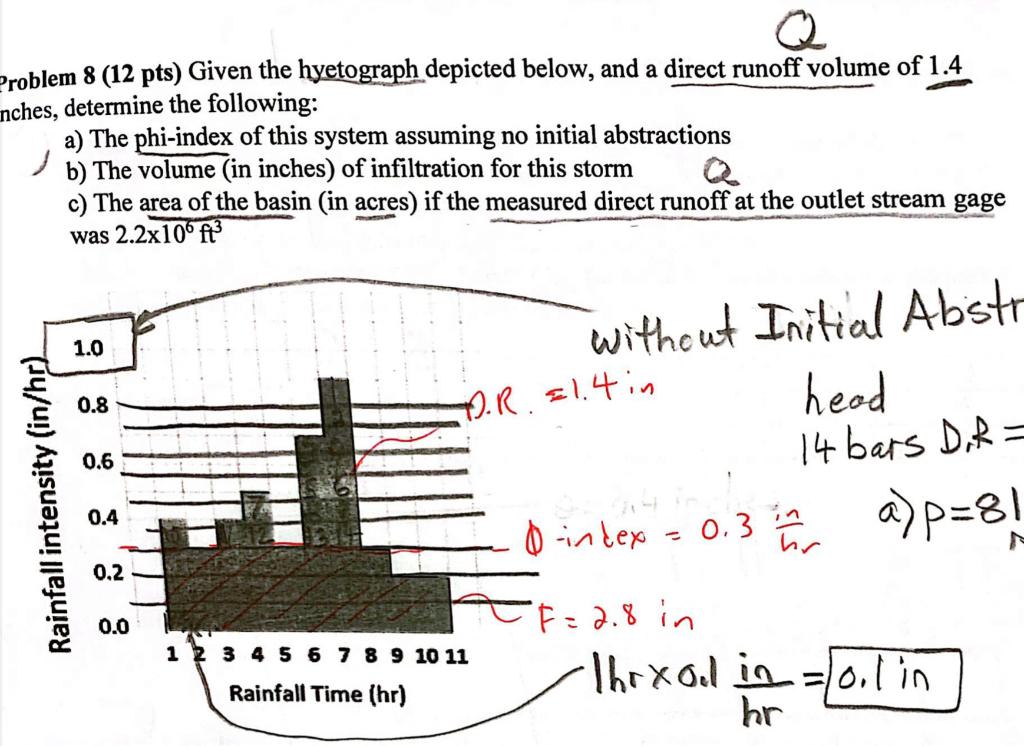 Q
Problem 8 (12 pts) Given the hyetograph depicted below, and a direct runoff volume of 1.4
nches, determine the following:
a) The phi-index of this system assuming no initial abstractions
b) The volume (in inches) of infiltration for this storm
Q
c) The area of the basin (in acres) if the measured direct runoff at the outlet stream gage
was 2.2x10⁶ ft³
without Initial Abstr
1.0
D.R. = 1.4 in
head
0.8
14 bars D.R =
0.6
0.4
Φ-index = 0.3 in/hr
a) p=81
0.2
F = 2.8 in
0.0
1 2 3 4 5 6 7 8 9 10 11
1hr x 0.1 in/hr = 0.1 in
Rainfall Time (hr)
Rainfall intensity (in/hr)